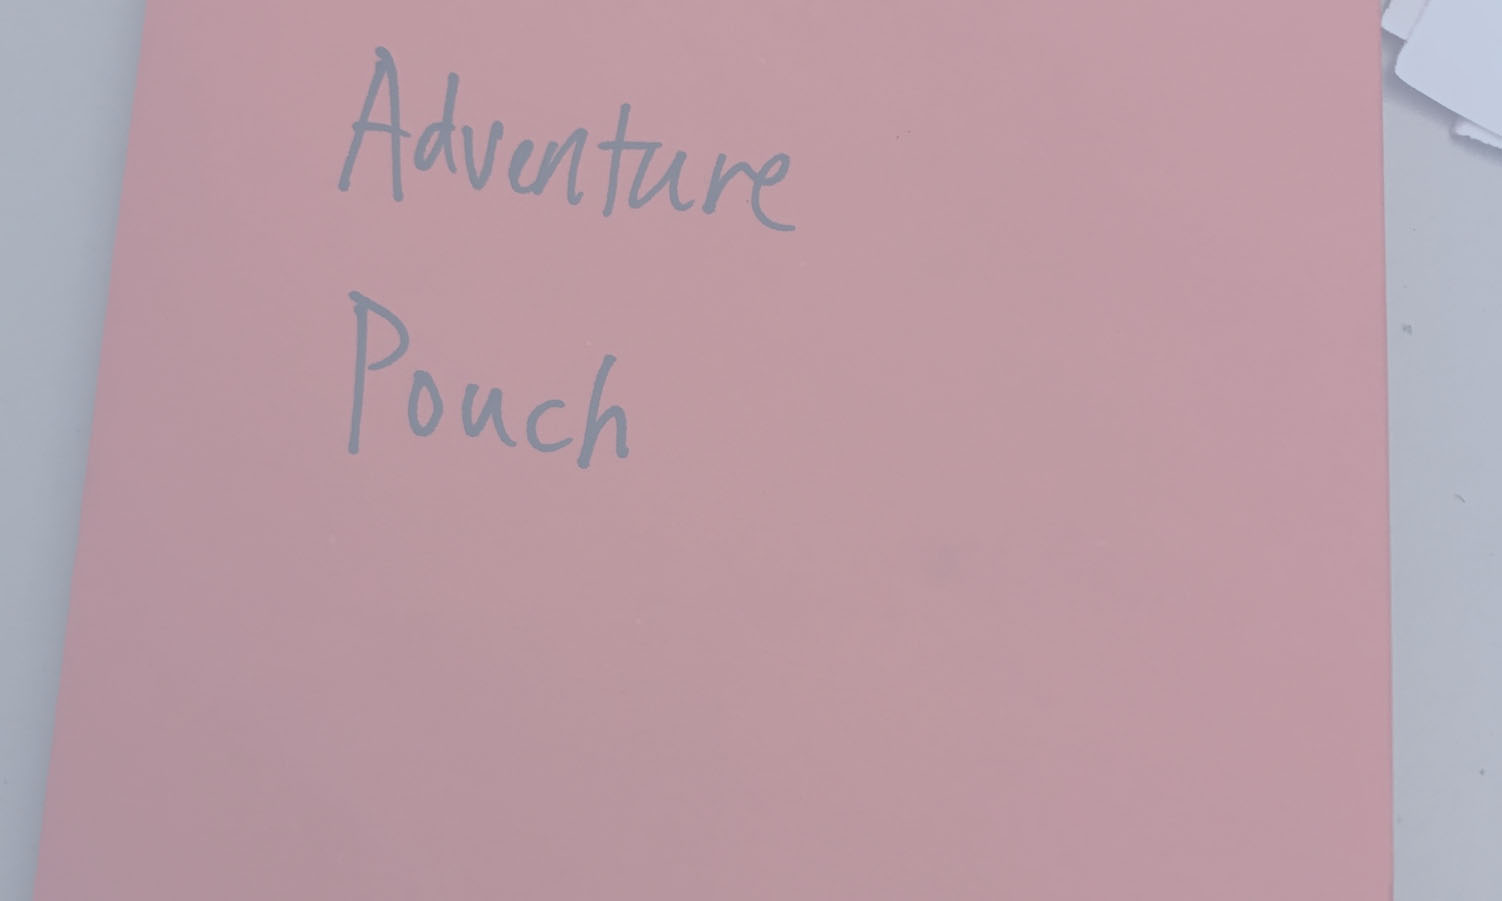 Adventure
Pouch